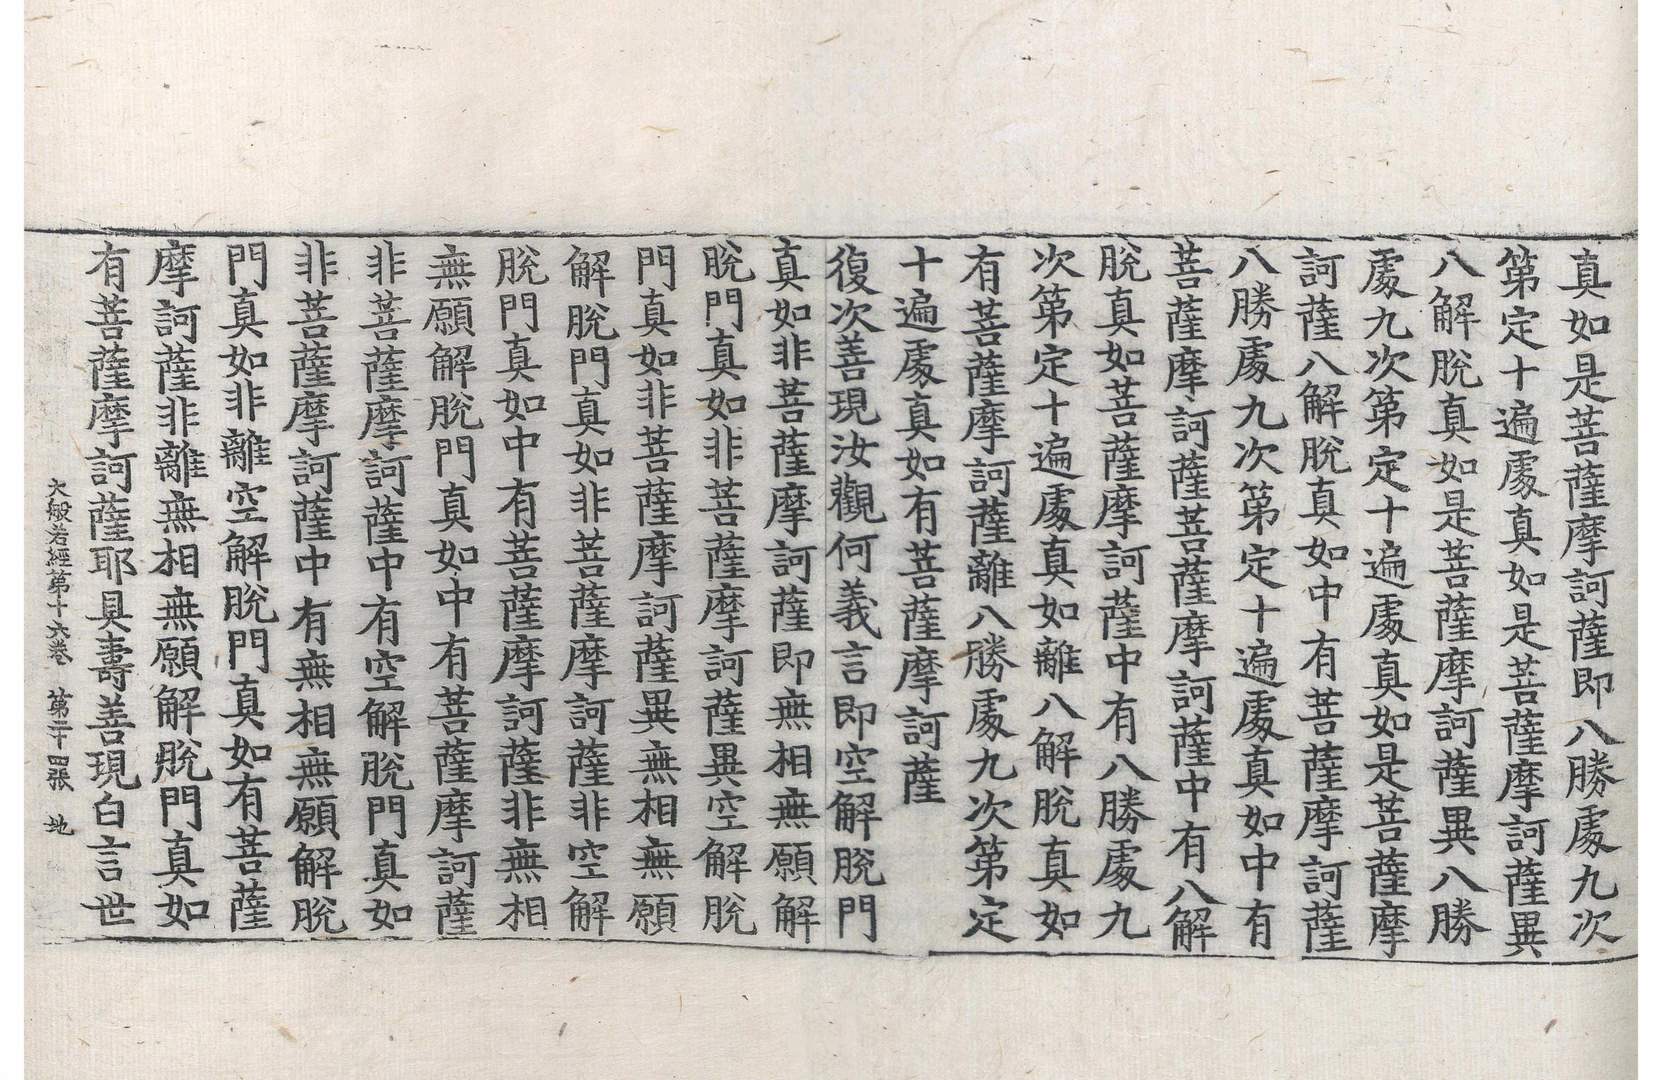 真如是菩薩摩訶薩即八勝處九次
第定十遍處真如是菩薩摩訶薩異
八解脫真如是菩薩摩訶薩異八勝
處九次第定十遍處真如是菩薩摩
訶薩八解脫真如中有菩薩摩訶薩
八勝處九次第定十遍處真如中有
菩薩摩訶薩菩薩摩訶薩中有八解
脫真如菩薩摩訶薩中有八勝處九
次第定十遍處真如離八解脫真如
有菩薩摩訶薩離八勝處九次第定
十遍處真如有菩薩摩訶薩
復次善現汝觀何義言即空解脫門
真如非菩薩摩訶薩即無相無願解
脫門真如非菩薩摩訶薩異空解脫
門真如非菩薩摩訶薩異無相無願
解脫門真如非菩薩摩訶薩非空解
脫門真如中有菩薩摩訶薩非無相
無願解脫門真如中有菩薩摩訶薩
非菩薩摩訶薩中有空解脫門真如
非菩薩摩訶薩中有無相無願解脫
門真如非離空解脫門真如有菩薩
摩訶薩非離無相無願解脫門真如
有菩薩摩訶薩耶具壽善現白言世
大般若經第十六卷 第二十四張 地